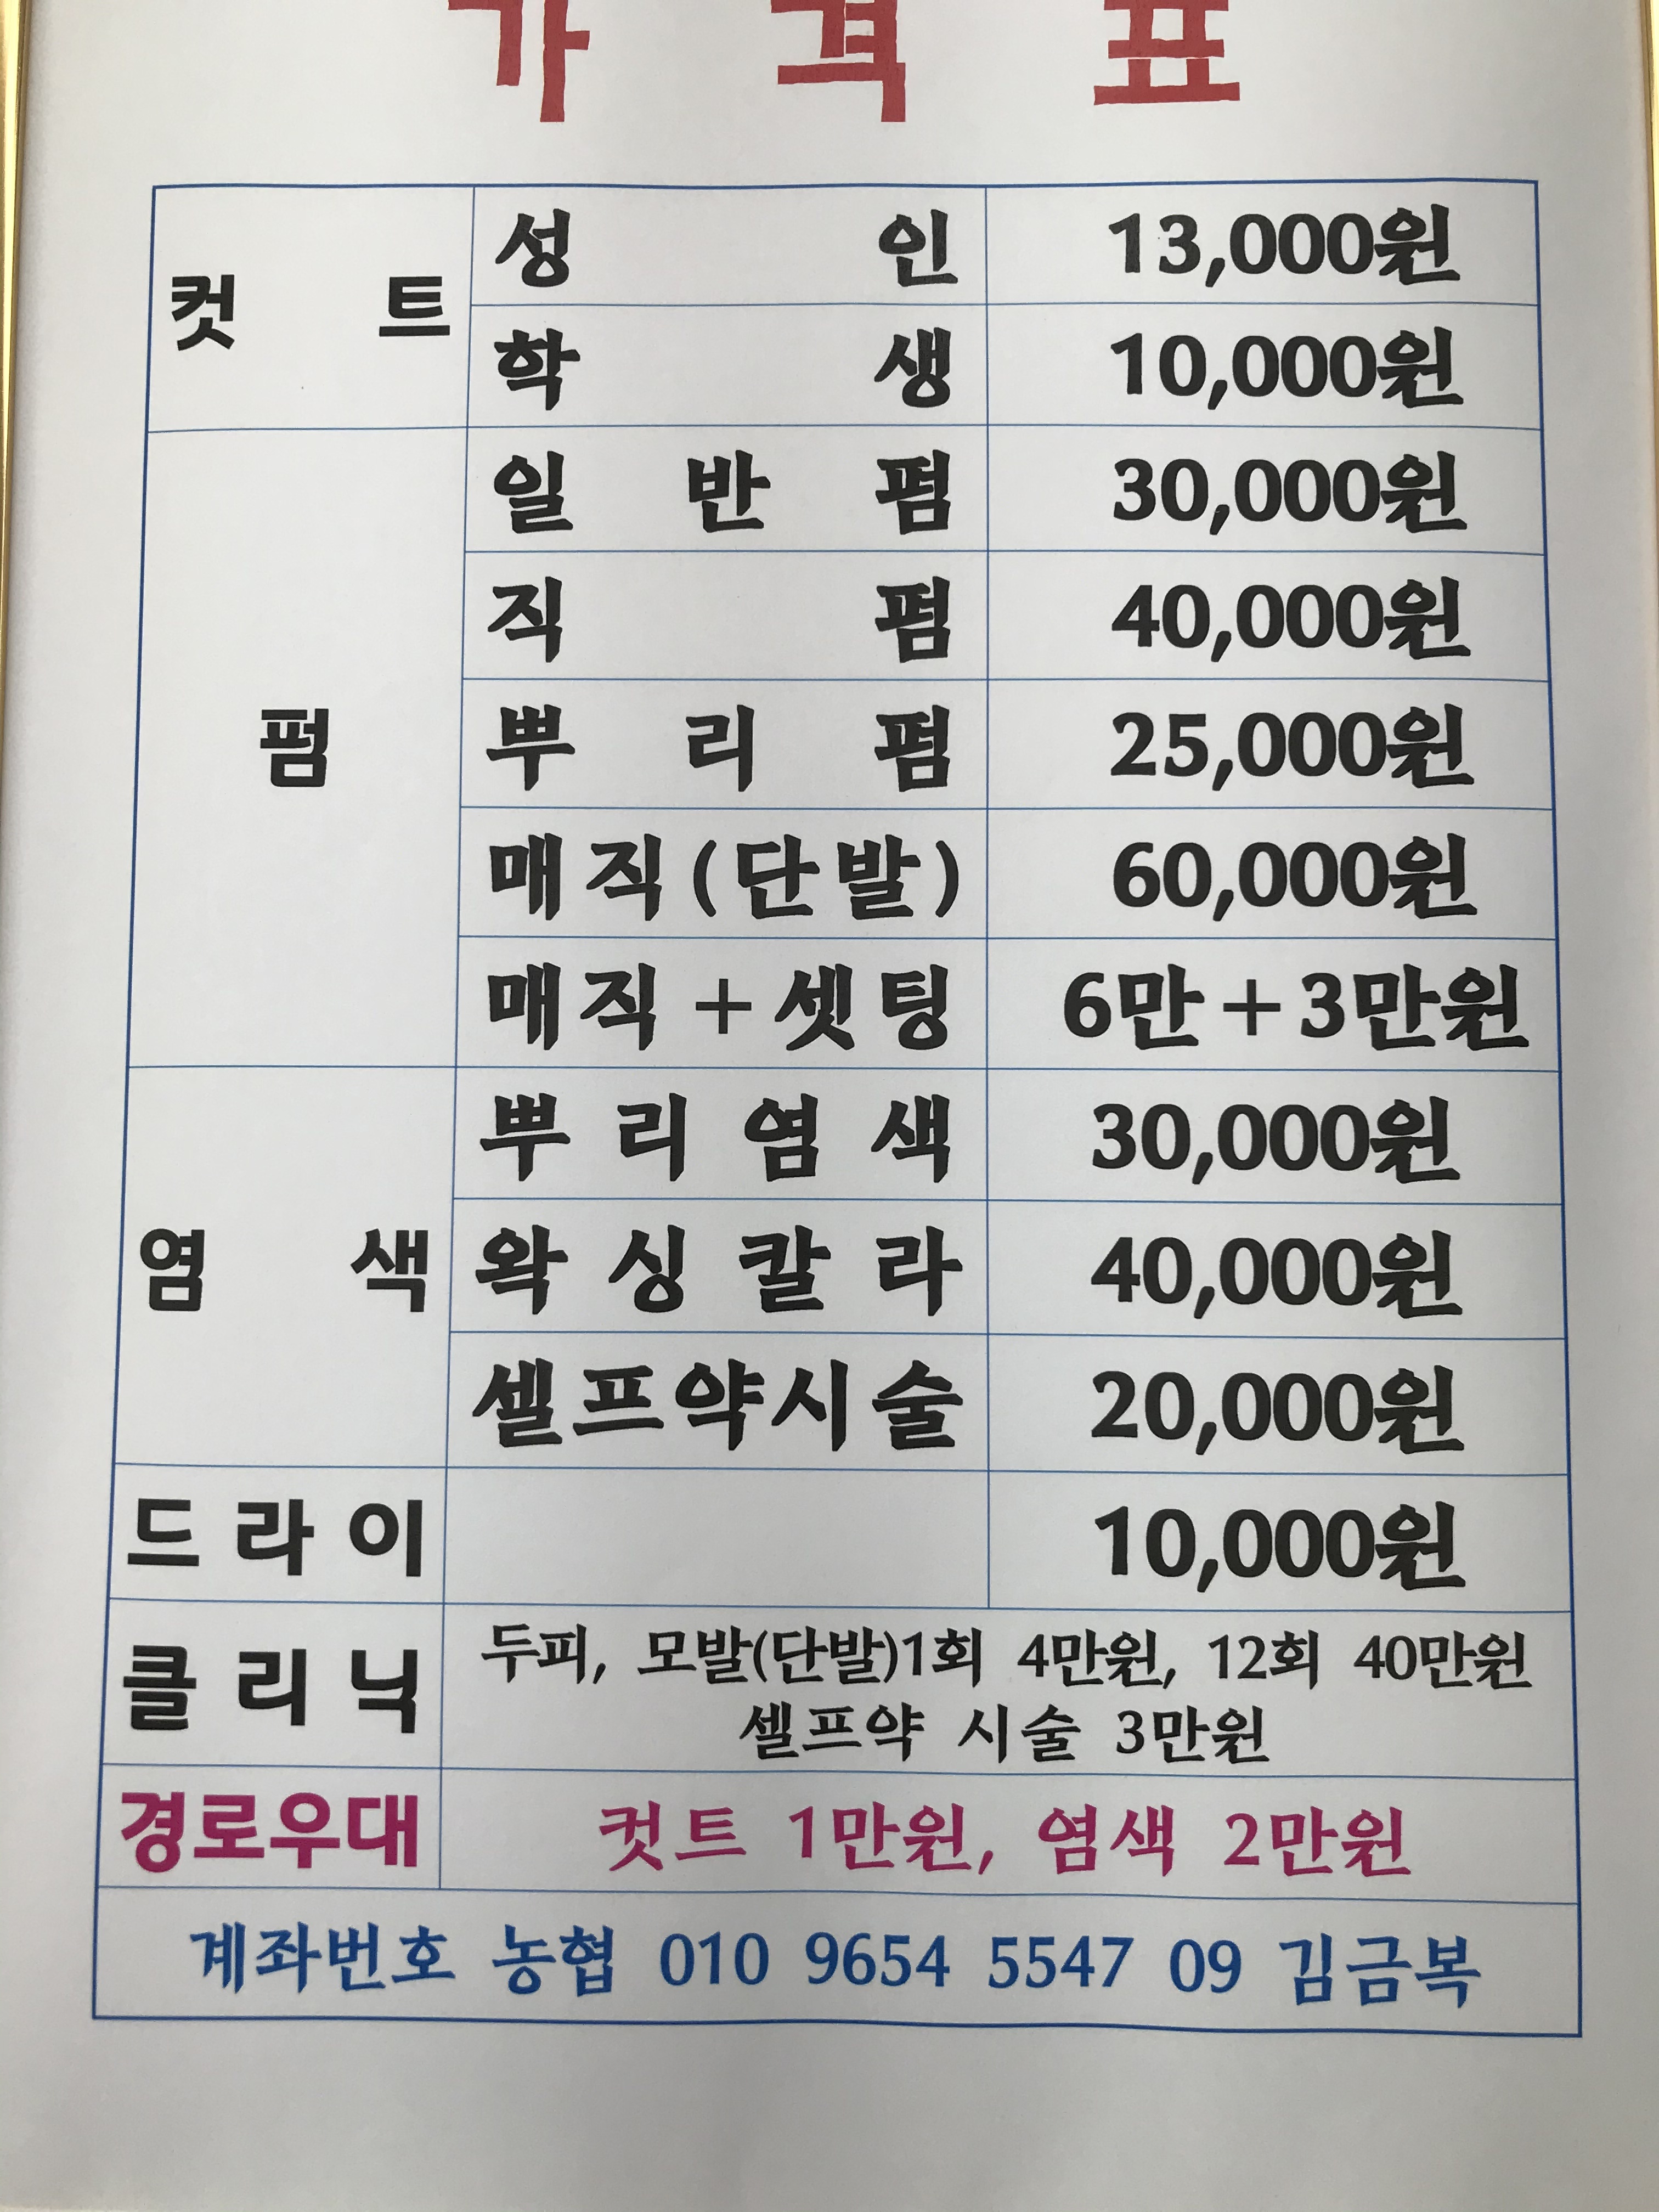 가격표
컷트
성인 13,000원
학생 10,000원
펌
일반펌 30,000원
직펌 40,000원
뿌리펌 25,000원
매직(단발) 60,000원
매직+셋팅 6만+3만원
염색
뿌리염색 30,000원
왁싱칼라 40,000원
셀프약시술 20,000원
드라이 10,000원
클리닉
두피, 모발(단발)1회 4만원, 12회 40만원
셀프약 시술 3만원
경로우대 컷트 1만원, 염색 2만원
계좌번호 농협 010 9654 5547 09 김금복